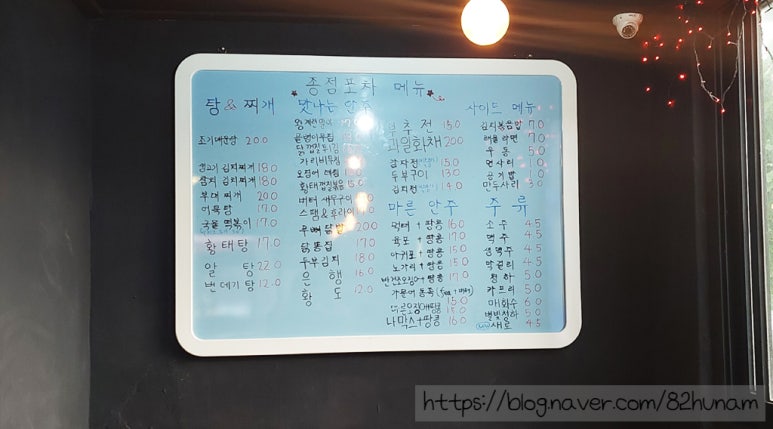 종점포차 메뉴
탕 & 찌개
조기매운탕 20.0
김치찌개 18.0
김치찌개 18.0
부대찌개 20.0
어묵탕 17.0
국물떡볶이 17.0
황태탕 17.0
알탕 22.0
번데기탕 12.0
맛나는 안주
골뱅이무침
가리비무침
황태껍질볶음
버터새우구이
스팸&후라이
무뼈닭발 20.0
닭똥집 17.0
두부김치 18.0
은행 16.0
황도 12.0
부추전 15.0
과일화채 20.0
감자전 15.0
두부구이 13.0
김치전 14.0
마른 안주
먹태+땅콩 16.0
육포+땅콩 15.0
아귀포+땅콩 15.0
노가리+땅콩 15.0
반건조오징어+땅콩 17.0
15.0
나막스+땅콩 16.0
사이드 메뉴
김치볶음밥 7.0
해물라면 7.0
우동 5.0
면사리 1.0
공기밥 1.0
만두사리 3.0
주류
소주 4.5
맥주 4.5
생맥주 4.5
막걸리 4.5
청하 5.0
카프리 5.0
매화수 6.0
별빛청하 5.0
새로 4.5
https://blog.naver.com/82hunam